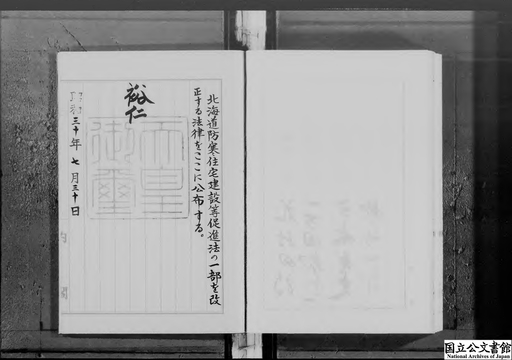 北海道防寒住宅建設等促進法の一部を改
正する法律をここに公布する。
裕仁
天皇
御璽
昭和三十年七月三十日
国立公文書館
National Archives of Japan